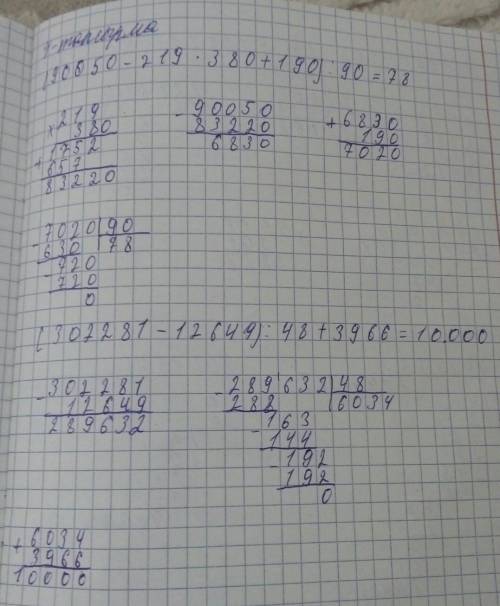 7-тапсырма
(90050 - 219 · 380 + 190) : 90 = 78
× 219
380
+ 1752
657
83220
- 90050
83220
6830
+ 6830
190
7020
- 7020 | 90
630 | 78
- 720
720
0
(302281 - 12649) : 48 + 3966 = 10.000
- 302281
12649
289632
- 289632 | 48
288 | 6034
- 163
144
- 192
192
0
+ 6034
3966
10000